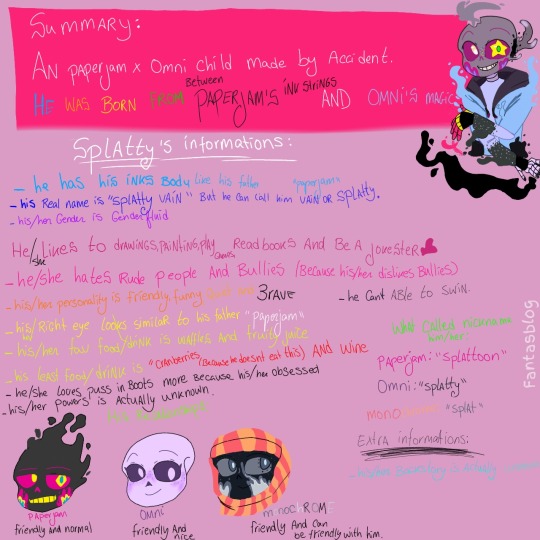 Summary:
AN paperjam x Omni child made by Accident.
HE WAS BORN FROM Between PAPERJAM'S INK STRINGS AND OMNI'S MAGIC
Splatty's informations:
- he has his inks Body like his father "paperjam"
- his Real name is "splatty VAIN" But he can call him VAIN or SPLATTY.
- his/her Gender is Genderfluid
He/she Likes to drawings, painting, play Games, Read books And Be A Jovester
- he/she hates Rude people And Bullies (Because his/her dislives Bullies)
- his/her personality is friendly, funny, And 3RAVE
- he Can't ABle to swim.
- his Right eye looks similar to his father "paperjam"
- his/her fav food/drink is waffles And fruity juice
- his least food/drink is "cranberries (Because he doesnt eat this) AND wine
- he/she Loves puss in Boots more Because his/her obsessed
- his/her powers is Actually unknown.
called nickname him/her:
Paperjam: "splattoon"
Omni: "splatty"
mono "splat"
Extra informations:
fantasblog
PAPERJAM
friendly and normal
OMNI
friendly And nice
monochROME
friendly And can be friendly with him.